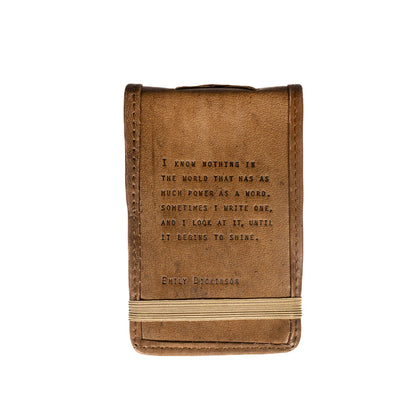 I KNOW NOTHING IN
THE WORLD THAT HAS AS
MUCH POWER AS A WORD.
SOMETIMES I WRITE ONE,
AND I LOOK AT IT, UNTIL
IT BEGINS TO SHINE.
EMILY DICKINSON